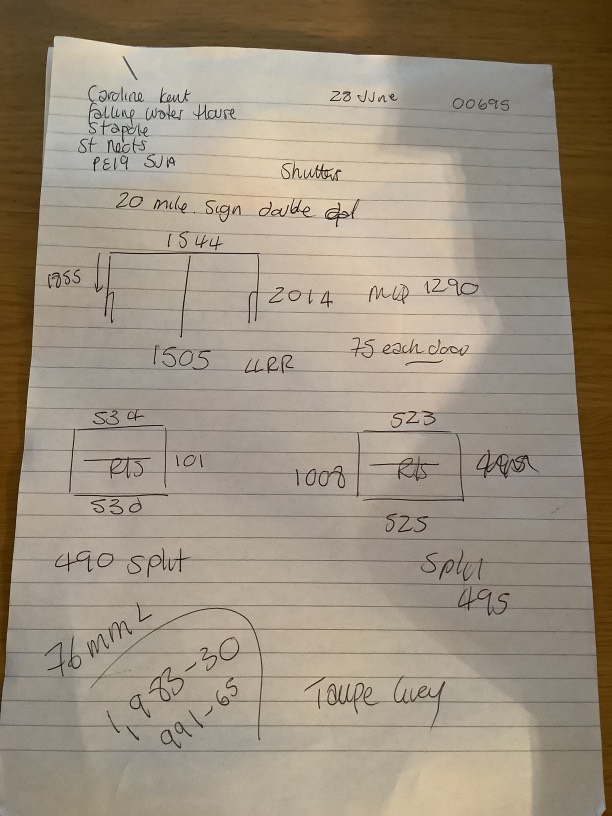 Caroline Kent
falling water House
Stapole
St Neots
PE19 5JA
28 June
00695
Shutters
20 mile sign double
1544
1855
2014
MID 1290
1505
LLRR
75 each door
534
RTS
101
530
523
1008
RTS
525
490 split
Split
495
76mm L
1,983-30
991-65
Taupe Grey